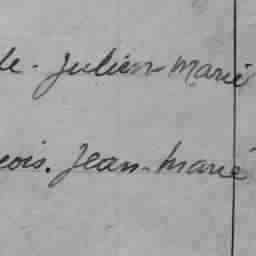 le. Julien-Marie
cois. Jean-Marie